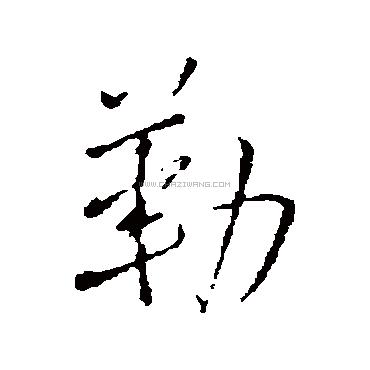 勒
WWW.CHAZIWANG.COM